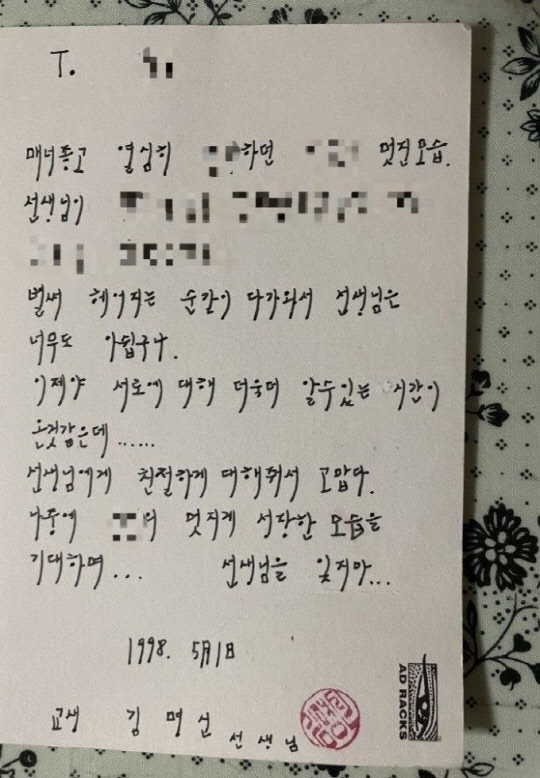 T.
매너좋고 열심히 하던 멋진모습.
선생님이
벌써 헤어지는 순간이 다가와서 선생님은
너무도 아쉽구나.
이제야 서로에 대해 더욱더 알수있는 시간이
온것같은데 ......
선생님에게 친절하게 대해줘서 고맙다.
나중에 의 멋지게 성장한 모습을
기대하며... 선생님을 잊지마...
1998. 5月1日
교생 김 명 선 선생님
AD RACKS